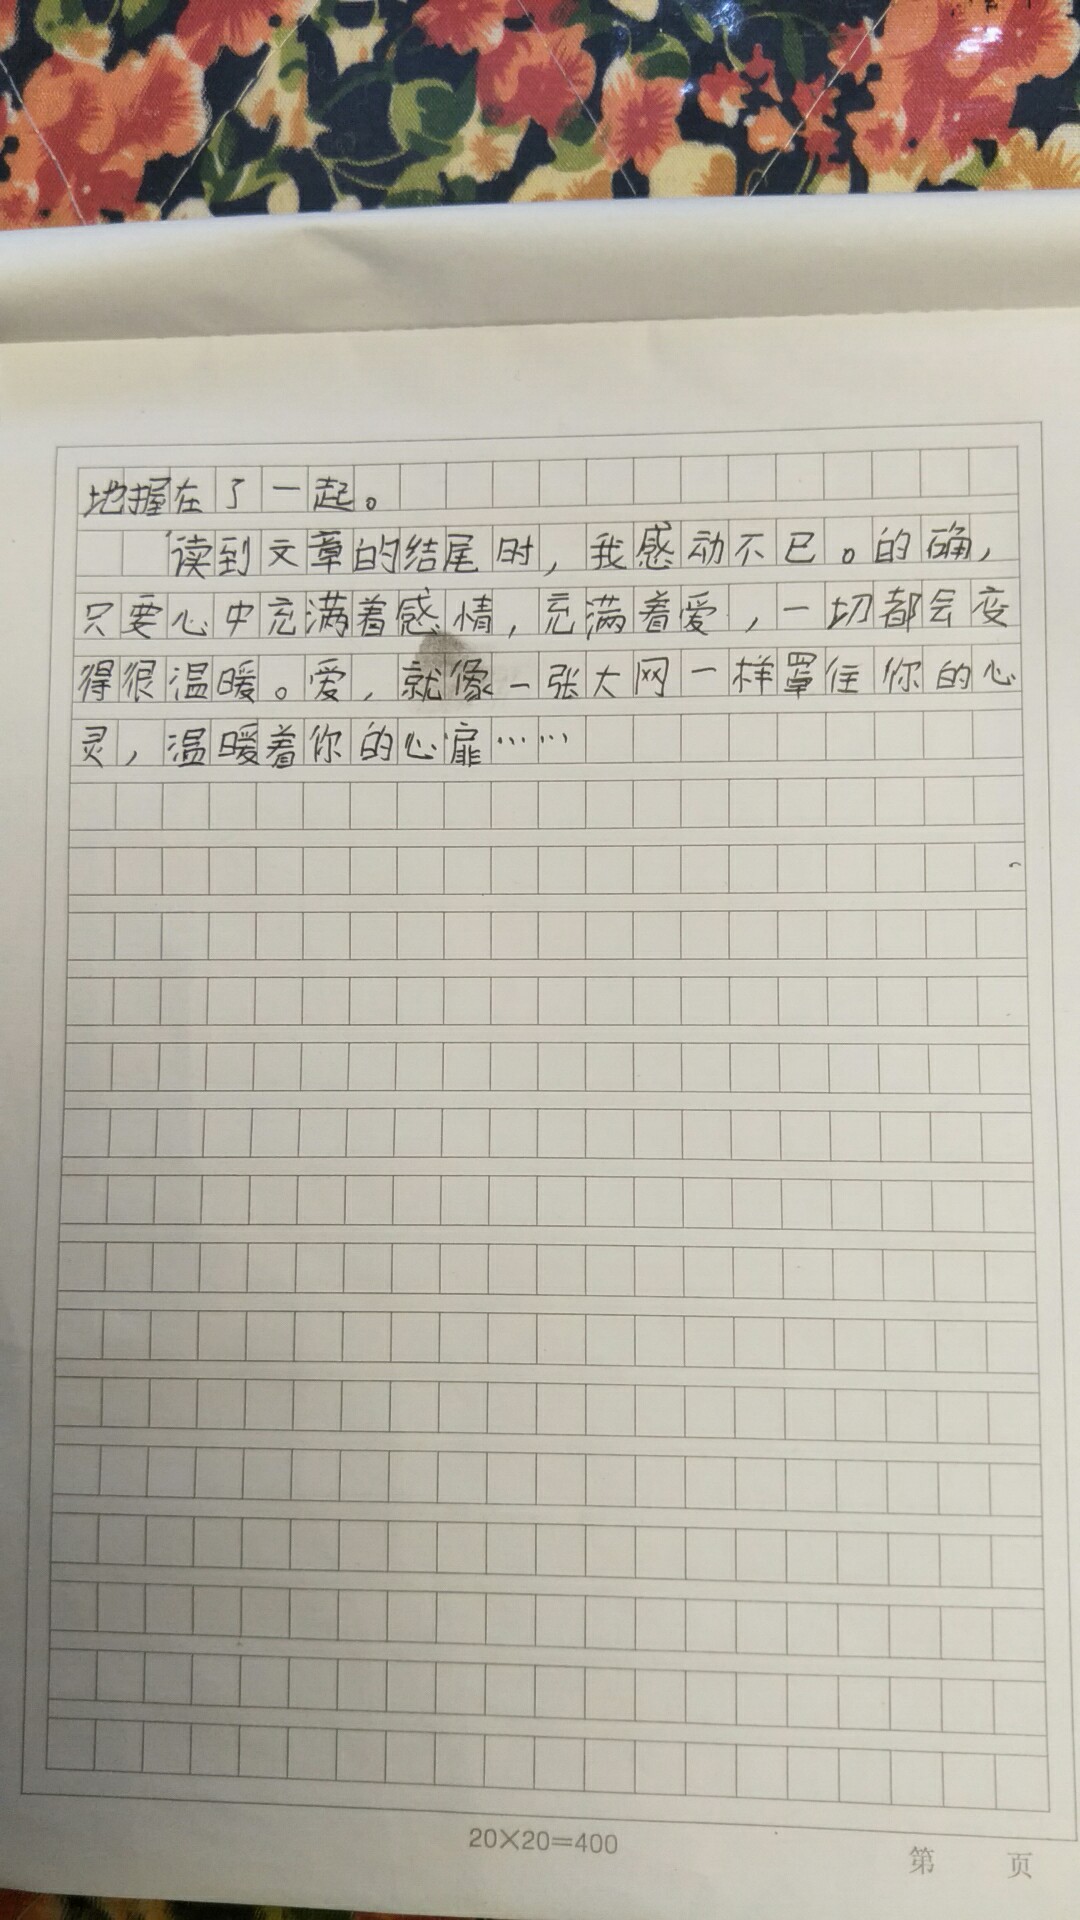 地握在了一起。
读到文章的结尾时，我感动不已。的确，
只要心中充满着感情，充满着爱，一切都会变
得很温暖。爱，就像一张大网一样罩住你的心
灵，温暖着你的心扉……
20×20=400
第 页